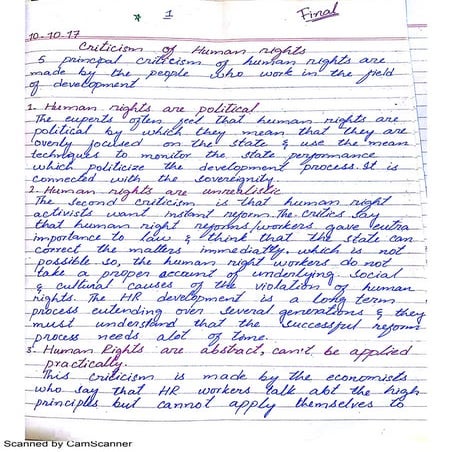 1
Final
10-10-17
Criticism of Human rights
5 principal criticism of human rights are
made by the people who work in the field
of development
1. Human rights are political
The experts often feel that human rights are
political by which they mean that they are
overly focused on the state & use the mean
techniques to monitor the state performance
which politicize the development process. It is
connected with the sovereignty.
2. Human rights are unrealistic
The second criticism is that human right
activists want instant reform. The critics say
that human right reforms/workers gave extra
importance to law & think that the state can
correct the matters immediatly, which is not
possible so, the human right workers do not
take a proper account of underlying social
& cultural causes of the violation of human
rights. The HR development is a long term
process extending over several generations & they
must understand that the successful reform
process needs alot of time.
3. Human Rights are abstract, can't be applied
practically.
This criticism is made by the economists
who say that HR workers talk abt the high
principles but cannot apply themselves to
Scanned by CamScanner